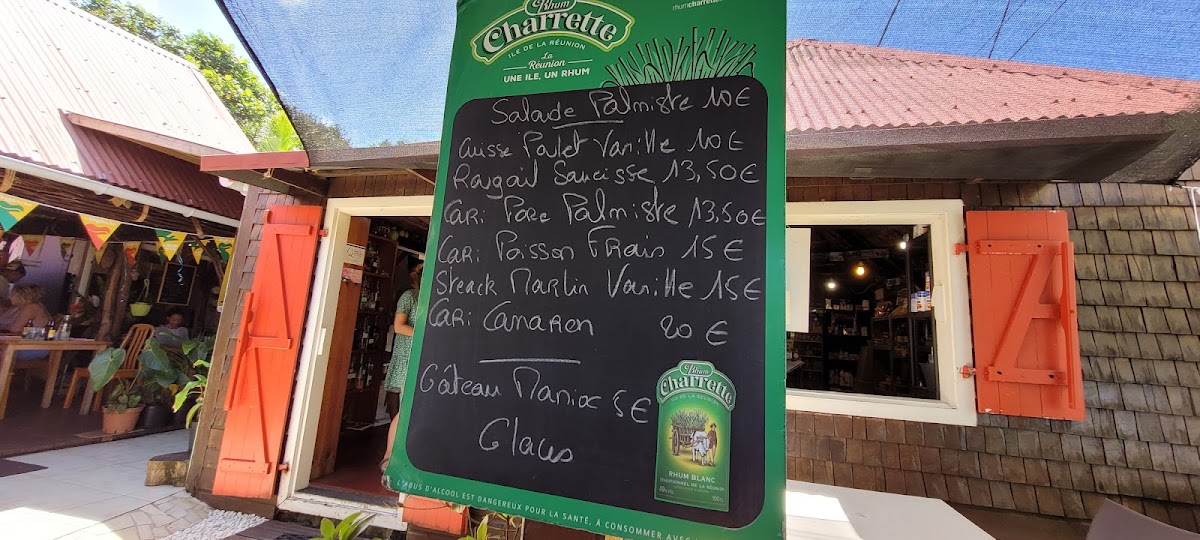 Rhum
Charrette
ILE DE LA RÉUNION
La
Réunion
UNE ILE, UN RHUM
Salade Palmiste 10€
Cuisse Poulet Vanille 10€
Rougail Saucisse 13,50€
CARi Porc Palmiste 13,50€
CARi Poisson Frais 15€
Steack Marlin Vanille 15€
CARi Camaron 20€
Gâteau Manioc 5€
Glaces
Rhum
Charrette
ILE DE LA RÉUNION
RHUM BLANC
TRADITIONNEL DE LA RÉUNION
L'ABUS D'ALCOOL EST DANGEREUX POUR LA SANTÉ, À CONSOMMER AVEC